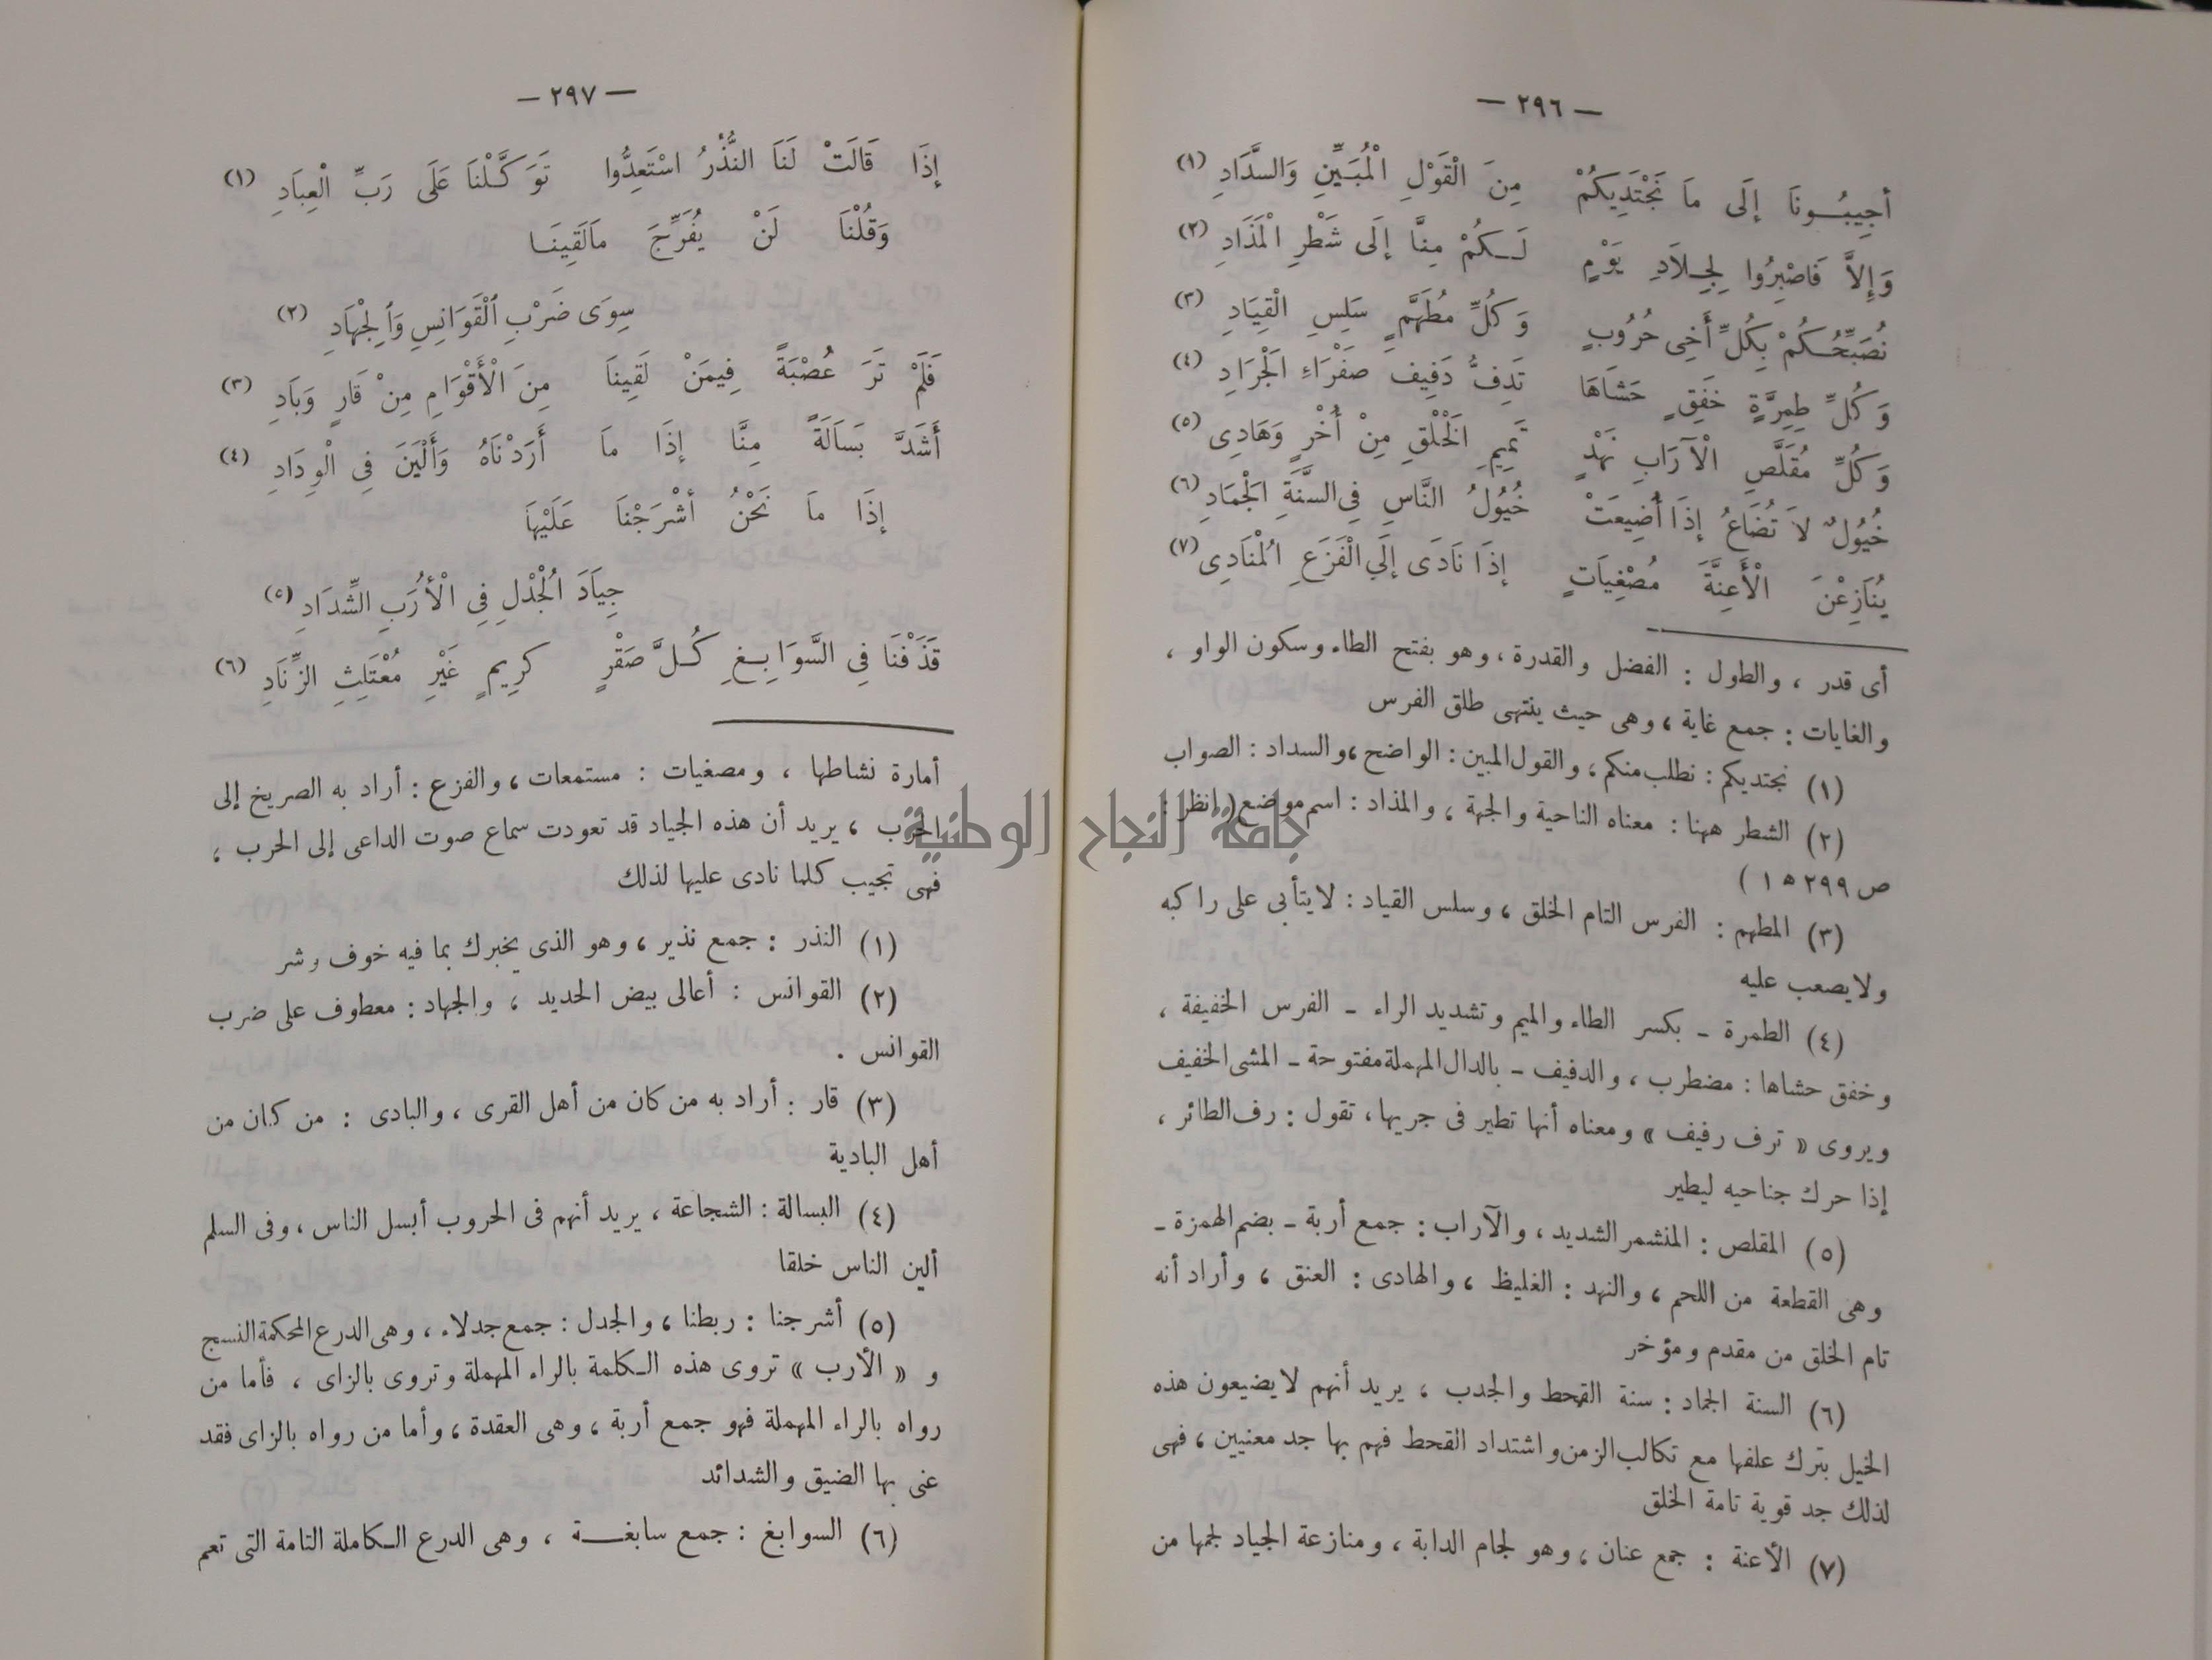 — ٢٩٦ —
أجِيبُــونَا إلَى مَا نَجْتَدِيكُمْ مِنَ الْقَوْلِ الْمُبَيِّنِ وَالسَّدَادِ (١)
وَإِلاَّ فَاصْبِرُوا لِجِـلاَدِ يَوْمٍ لَـكُمْ مِنَّا إلَى شَطْرِ الْمَذَادِ (٢)
نُصَبِّحْـكُمْ بِكُلِّ أَخِى حُرُوبٍ وَكُلِّ مُطَهَّمٍ سَلِسِ الْقِيَادِ (٣)
وَكُلِّ طِمِرَّةٍ خَفِقٍ حَشَاهَا تَدِفُّ دَفِيفَ صَفْرَاءِ الْجَرَادِ (٤)
وَكُلِّ مُقَلَّصِ الْآرَابِ نَهْدٍ تَمِيمِ الْخَلْقِ مِنْ أُخْرٍ وَهَادِى (٥)
خُيُولٌ لاَ تُضَاعُ إذَا أُضِيعَتْ خُيُولُ النَّاسِ فِى السَّنَةِ الْجَمَادِ (٦)
يُنَازِعْنَ الْأَعِنَّةَ مُصْغِيَاتٍ إذَا نَادَى إلَى الْفَزَعِ الْمُنَادِى (٧)
أى قدر ، والطول : الفضل والقدرة ، وهو بفتح الطاء وسكون الواو ،
والغايات : جمع غاية ، وهى حيث ينتهى طلق الفرس
(١) نجتديكم : نطلب منكم ، والقول المبين : الواضح ، والسداد : الصواب
(٢) الشطر ههنا : معناه الناحية والجهة ، والمذاد : اسم موضع (انظر :
ص ٢٩٩ ه ١ )
(٣) المطهم : الفرس التام الخلق ، وسلس القياد : لا يتأبى على راكبه
ولا يصعب عليه
(٤) الطمرة – بكسر الطاء والميم وتشديد الراء – الفرس الخفيفة ،
وخفق حشاها : مضطرب ، والدفيف – بالدال المهملة مفتوحة – المشى الخفيف
ويروى « ترف رفيف » ومعناه أنها تطير فى جريها ، تقول : رف الطائر ،
إذا حرك جناحيه ليطير
(٥) المقلص : المنشمر الشديد ، والآراب : جمع أربة – بضم الهمزة –
وهى القطعة من اللحم ، والنهد : الغليظ ، والهادى : العنق ، وأراد أنه
تام الخلق من مقدم ومؤخر
(٦) السنة الجماد : سنة القحط والجدب ، يريد أنهم لا يضيعون هذه
الخيل بترك علفها مع تكالب الزمن واشتداد القحط فهم بها جد معنيين ، فهى
لذلك جد قوية تامة الخلق
(٧) الأعنة : جمع عنان ، وهو لجام الدابة ، ومنازعة الجياد لجمها من
— ٢٩٧ —
إذَا قَالَتْ لَنَا النُّذْرُ اسْتَعِدُّوا تَوَكَّلْنَا عَلَى رَبِّ الْعِبَادِ (١)
وَقُلْنَا لَنْ يُفَرِّجَ مَالَقِينَـا
سِوَى ضَرْبِ الْقَوَانِسِ وَالْجِهَادِ (٢)
فَلَمْ تَرَ عُصْبَةً فِيمَنْ لَقِينَا مِنَ الْأَقْوَامِ مِنْ قَارٍ وَبَادِ (٣)
أَشَدَّ بَسَالَةً مِنَّا إذَا مَا أَرَدْنَاهُ وَأَلْيَنَ فِى الْوِدَادِ (٤)
إذَا مَا نَحْنُ أشْرَجْنَا عَلَيْهَا
جِيَادَ الْجُدْلِ فِى الْأُرَبِ الشِّدَادِ (٥)
قَذَفْنَا فِى السَّوَابِـغِ كُـلَّ صَقْرٍ كَرِيمٍ غَيْرِ مُعْتَلِثِ الزِّنَادِ (٦)
أمارة نشاطها ، ومصغيات : مستمعات ، والفزع : أراد به الصريخ إلى
الحرب ، يريد أن هذه الجياد قد تعودت سماع صوت الداعى إلى الحرب ،
فهى تجيب كلما نادى عليها لذلك
(١) النذر : جمع نذير ، وهو الذى يخبرك بما فيه خوف وشر
(٢) القوانس : أعالى بيض الحديد ، والجهاد : معطوف على ضرب
القوانس .
(٣) قار : أراد به من كان من أهل القرى ، والبادى : من كان من
أهل البادية
(٤) البسالة : الشجاعة ، يريد أنهم فى الحروب أبسل الناس ، وفى السلم
ألين الناس خلقا
(٥) أشرجنا : ربطنا ، والجدل : جمع جدلاء ، وهى الدرع المحكمة النسج
و « الأرب » تروى هذه الـكلمة بالراء المهملة وتروى بالزاى ، فأما من
رواه بالراء المهملة فهو جمع أربة ، وهى العقدة ، وأما من رواه بالزاى فقد
عنى بها الضيق والشدائد
(٦) السوابغ : جمع سابغـــة ، وهى الدرع الـكاملة التامة التى تعم
جامعة النجاح الوطنية